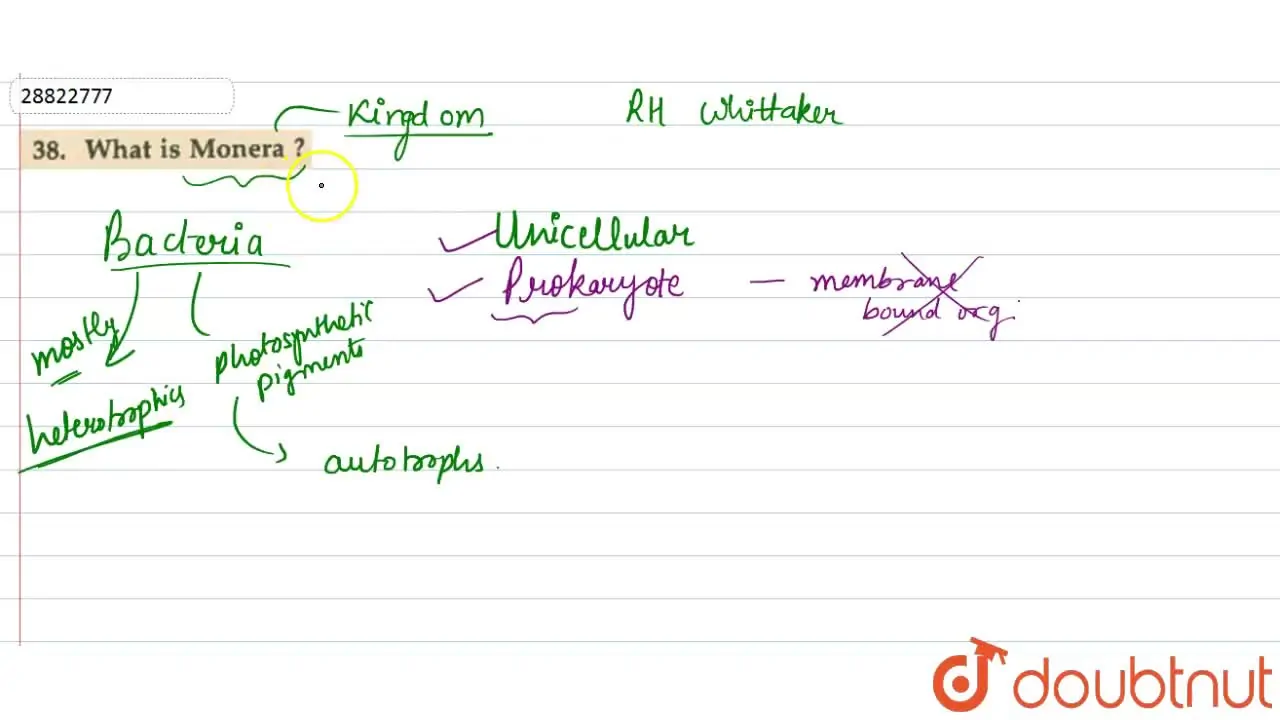 28822777
Kingdom
RH Whittaker
38. What is Monera ?
Bacteria
Unicellular
Prokaryote — membrane
bound org.
mostly
heterotrophics
photosynthetic
pigments
autotrophs.
doubtnut